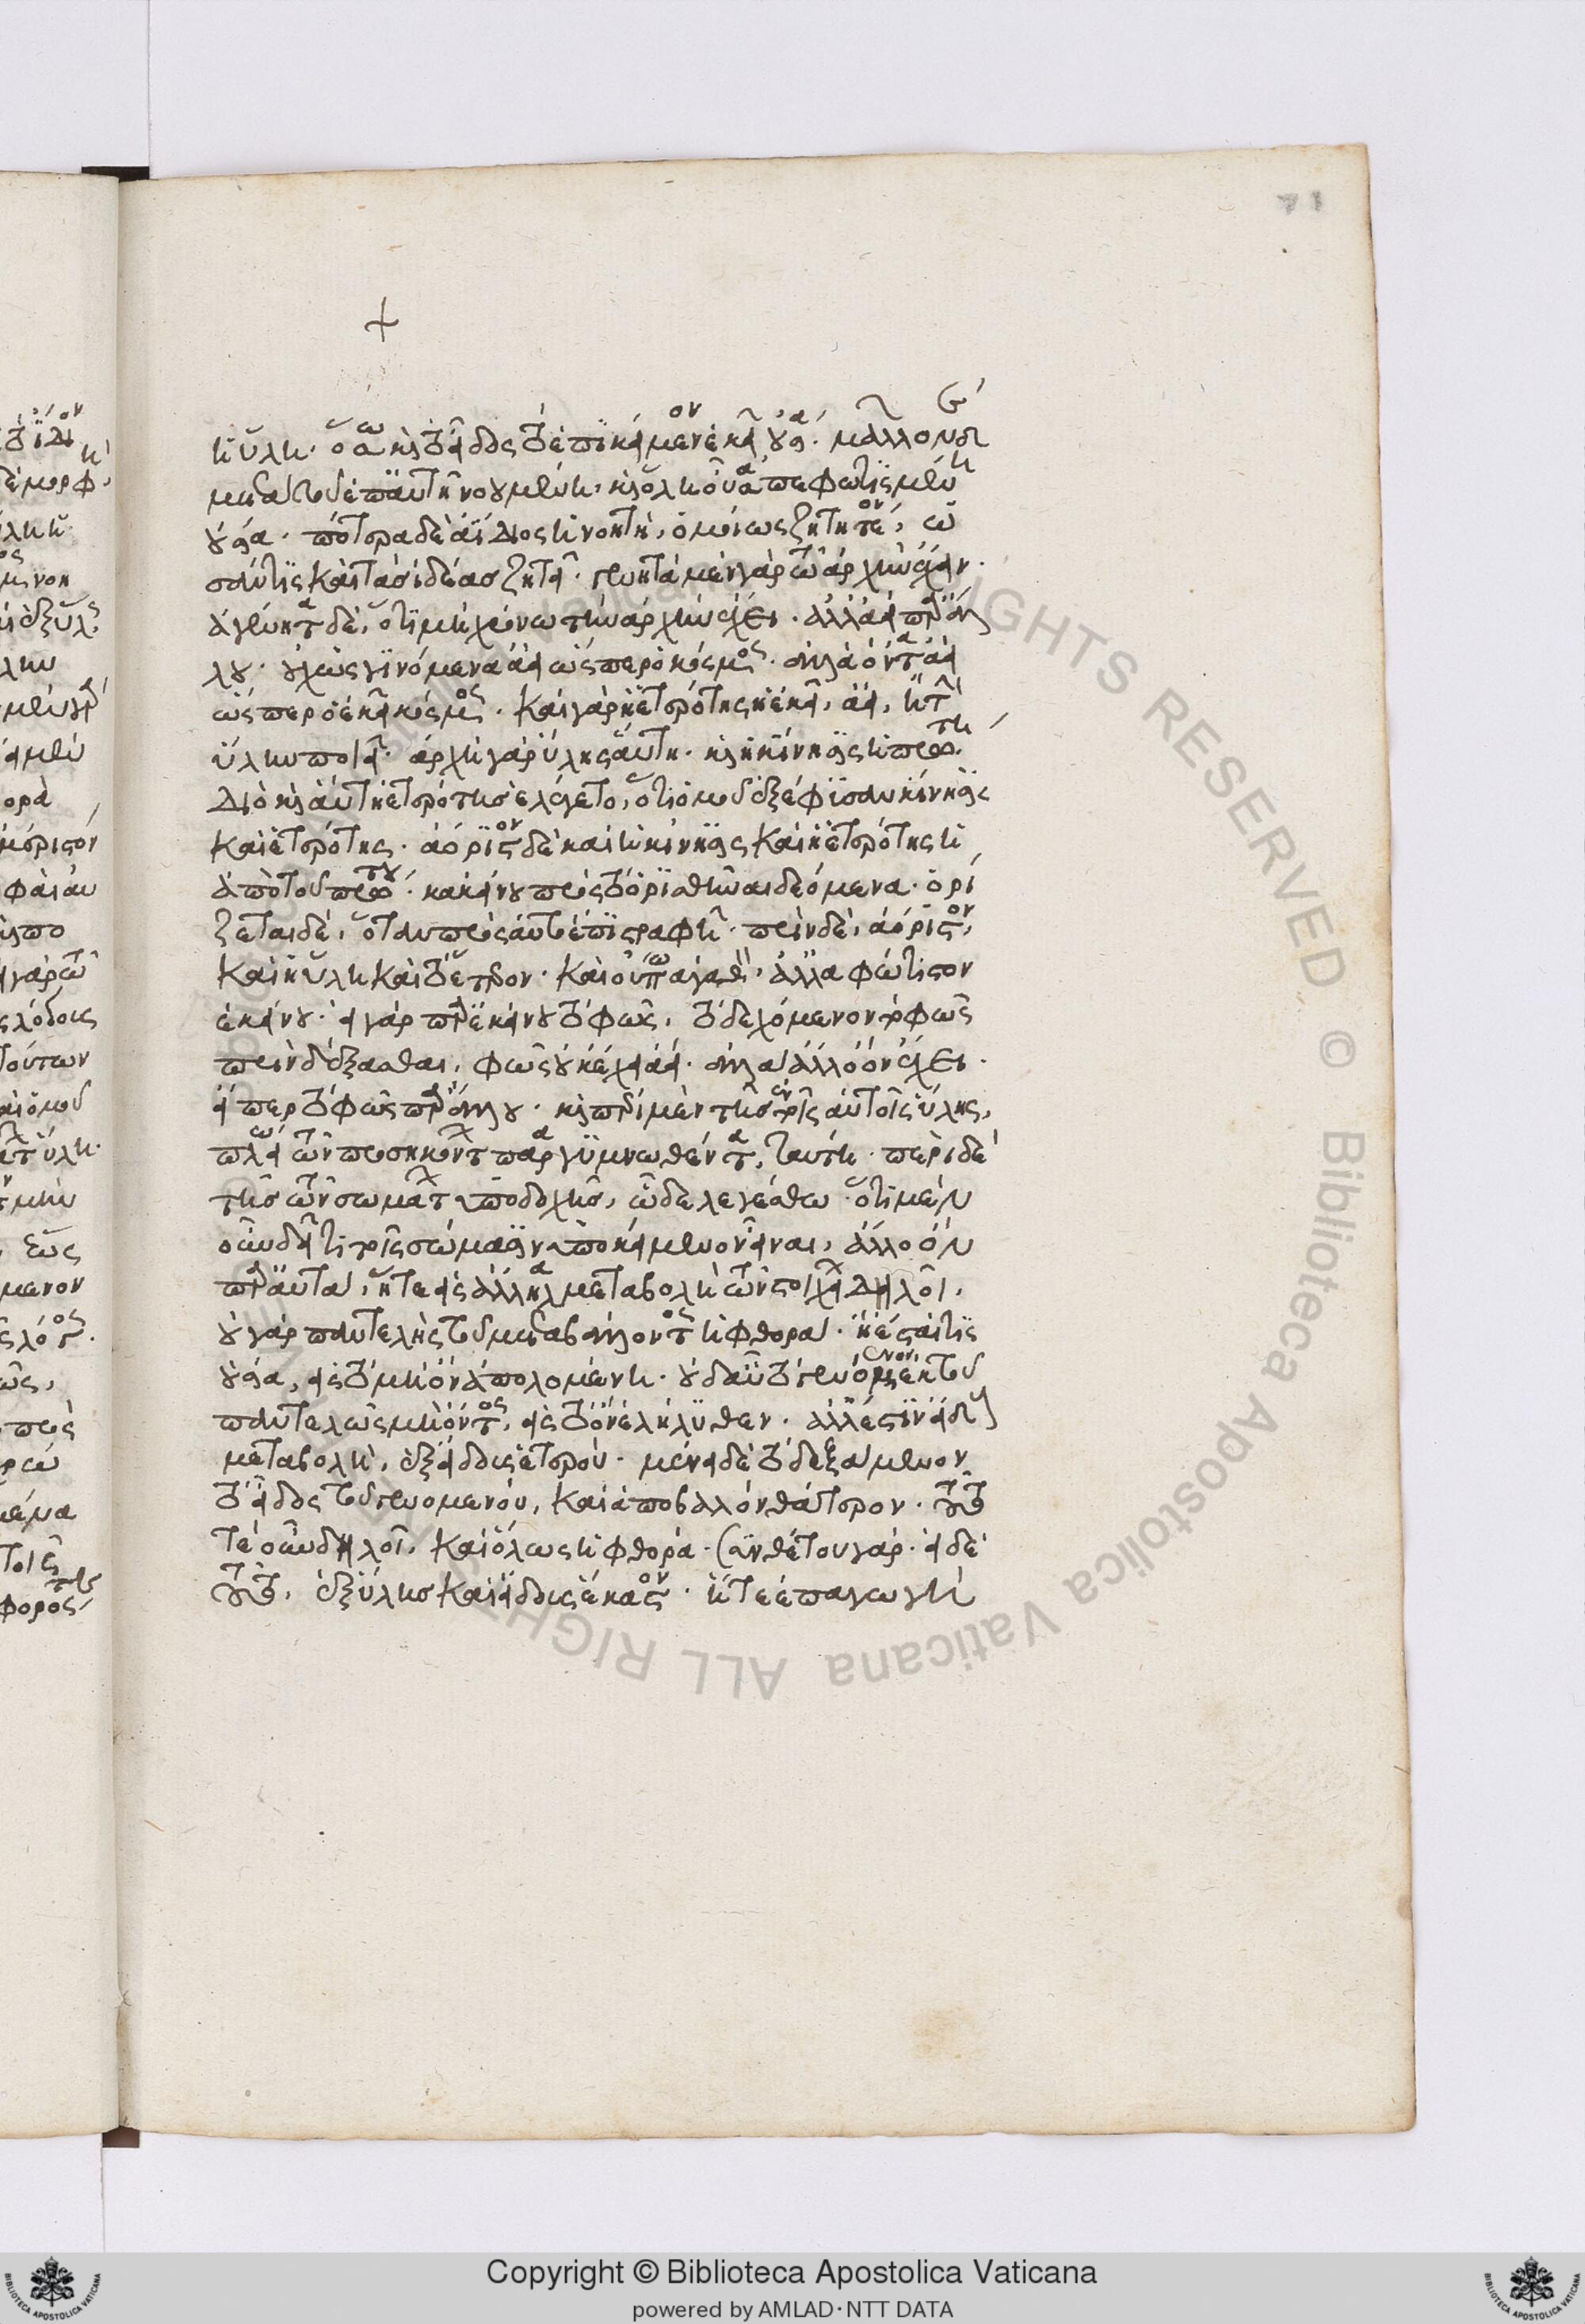 ἡ ὕλη· ὅσω καὶ τὸ εἶδος τὸ ἐπικείμενον ἐκεῖ οὐσία. μᾶλλον δὲ
μετὰ τοῦ ἐπαὐτῆ νοουμένη, καὶ ὅλη οὖσα, πεφωτισμένη
οὐσία. πότερα δὲ ἀΐδιος ἡ νοητὴ, ὁμοίως ζητητέον, ὡ
σάντις καὶ τὰς ἰδέας ζητεῖ· γενητὰ μὲν γὰρ τῶ ἀρχὴν ἔχειν.
ἀγένητα δὲ, ὅτι μὴ χρόνω τὴν ἀρχὴν ἔχει. ἀλλὰ εἰ παρ' ἄλ
λου. οὐχ ὡς γινόμενα ἀεὶ ὥσπερ ὁ κόσμος. ἀλλὰ ὄντα ἀεὶ
ὥσπερ ὁ ἐκεῖ κόσμος. καὶ γὰρ ἡ ἑτερότης ἡ ἐκεῖ, ἀεὶ, ἡ τὴν
ὕλην ποιεῖ. ἀρχὴ γὰρ ὕλης αὕτη. καὶ ἡ κίνησις ἡ πρώτη.
διὸ καὶ αὐτὴ ἑτερότης ἐλέγετο, ὅτι ὁμοῦ ἐξέφυσαν κίνησις
καὶ ἑτερότης. ἀόριστον δὲ καὶ ἡ κίνησις καὶ ἡ ἑτερότης ἡ
ἀπὸ τοῦ πρώτου. κακείνου πρὸς τὸ ὁρισθῆναι δεόμενα. ὁρί
ζεται δὲ, ὅταν πρὸς αὐτὸ ἐπιστραφῆ. πρὶν δὲ, ἀόριστον,
καὶ ἡ ὕλη καὶ τὸ ἕτερον. καὶ οὔπω ἀγαθὸν. ἀλλὰ φώτιστον
ἐκείνου. εἰ γὰρ παρ' ἐκείνου τὸ φῶς, τὸ δεχόμενον τὸ φῶς
πρὶν δέξασθαι, φῶς οὐκ ἔχει ἀεί. ἀλλὰ ἄλλο ὂν ἔχει.
εἴπερ τὸ φῶς παρ' ἄλλου. καὶ περὶ μὲν τῆς ἐν τοῖς αὐτοῖς ὕλης,
πλείω τῶν προσηκόντων παραγυμνωθέντα, ταύτη. περὶ δὲ
τῆς τῶν σωμάτων ὑποδοχῆς, ὧδε λεγέσθω. ὅτι μὲν
οὖν δεῖ τι τοῖς σώμασιν ὑποκείμενον εἶναι, ἄλλο ὂν
παρ' αὐτὰ, ἥ τε εἰς ἄλληλα μεταβολὴ τῶν στοιχείων δηλοῖ.
οὐ γὰρ παντελὴς τοῦ μεταβάλλοντος ἡ φθορά. ἢ ἔσται τις
οὐσία, εἰς τὸ μὴ ὂν ἀπολομένη. οὐδ' αὖ τὸ γενόμενον ἐκ τοῦ
παντελῶς μὴ ὄντος, εἰς τὸ ὂν ἐλήλυθεν. ἀλλ' ἔστιν εἴδους
μεταβολὴ, ἐξ εἴδους ἑτέρου. μένει δὲ τὸ δεξάμενον
τὸ εἶδος τοῦ γενομένου, καὶ ἀποβαλλὸν θάτερον. τοῦτό
τε οὖν δηλοῖ, καὶ ὅλως ἡ φθορά. συνθέτου γάρ. εἰ δὲ
τοῦτο, ἐξ ὕλης καὶ εἴδους ἕκαστον. ἥ τε ἐπαγωγὴ
Copyright © Biblioteca Apostolica Vaticana
powered by AMLAD·NTT DATA